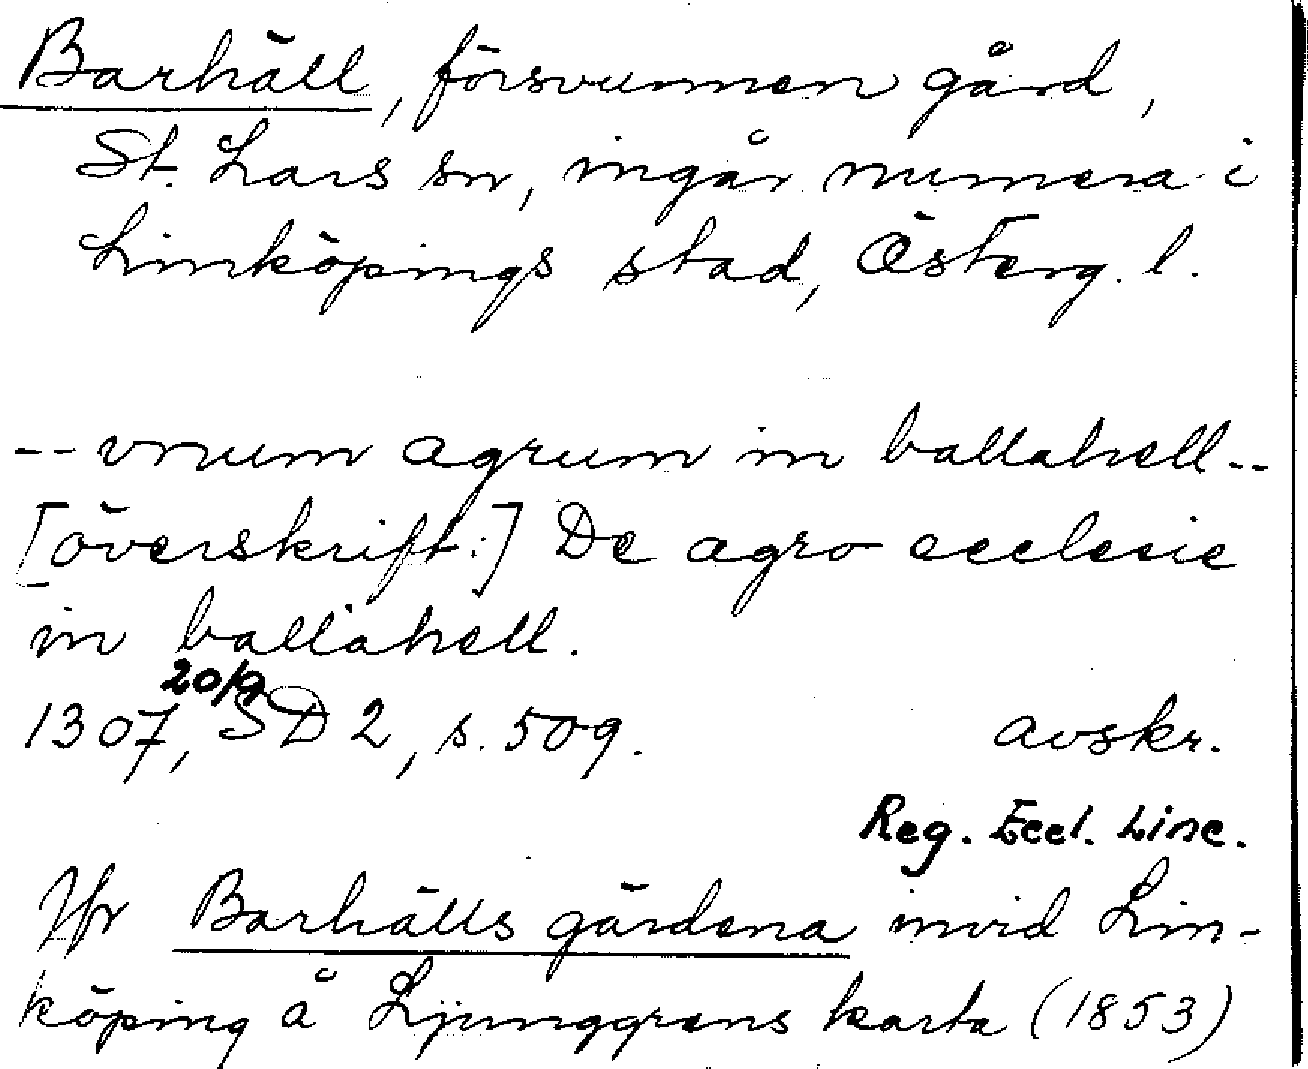 Barhäll, försvunnen gård,
St. Lars sn, ingår numera i
Linköpings stad, Österg. l.
-- vnum agrum in ballahell --
[överskrift:] De agro ecclesie
in ballahell.
20/9
1307, SD 2, s. 509. avskr.
Reg. Eccl. Linc.
Jfr Barhälls gärdena invid Lin-
köping å Ljunggrens karta (1853)